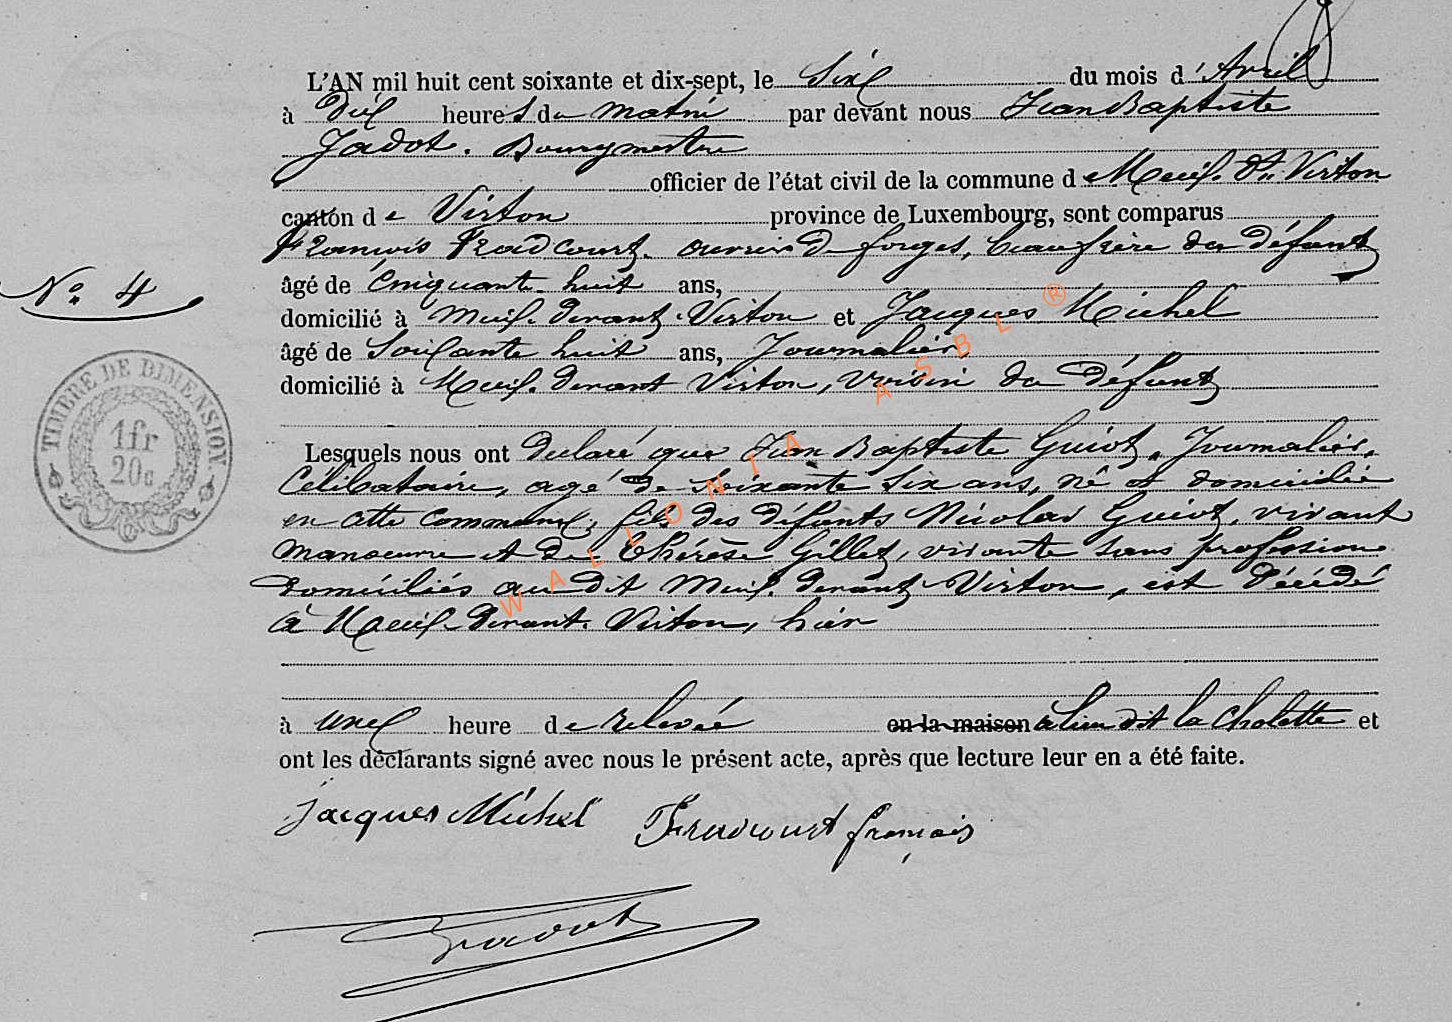 L'AN mil huit cent soixante et dix-sept, le Six du mois d'Avril
à dix heures du matin par devant nous Jean Baptiste
Jadot. Bourgmestre
officier de l'état civil de la commune de Meix. dt. Virton
canton de Virton province de Luxembourg, sont comparus
François Fradcourt. ouvrier de forges, beaufrère du défunt
N° 4
âgé de cinquante huit ans,
domicilié à Meix. devant. Virton et Jacques Michel
âgé de Soixante huit ans, Journalier
domicilié à Meix. devant Virton, voisin du défunt
TIMBRE DE DIMENSION
1fr
20c
Lesquels nous ont déclaré que Jean Baptiste Guiot, Journalier,
Célibataire, agé de Soixante Six ans, né et domicilié
en cette commune, fils des défunts Nicolas Guiot, vivant
manoeuvre et de Thérèse Gillet, vivante sans profession
domiciliés au dit Meix. devant Virton, est décédé
à Meix-devant. Virton, hier
à une heure de relevée en la maison à lieu dit la Cholette et
ont les déclarants signé avec nous le présent acte, après que lecture leur en a été faite.
Jacques Michel Fradcourt françois
Jadot
WALLONIA ASBL ®